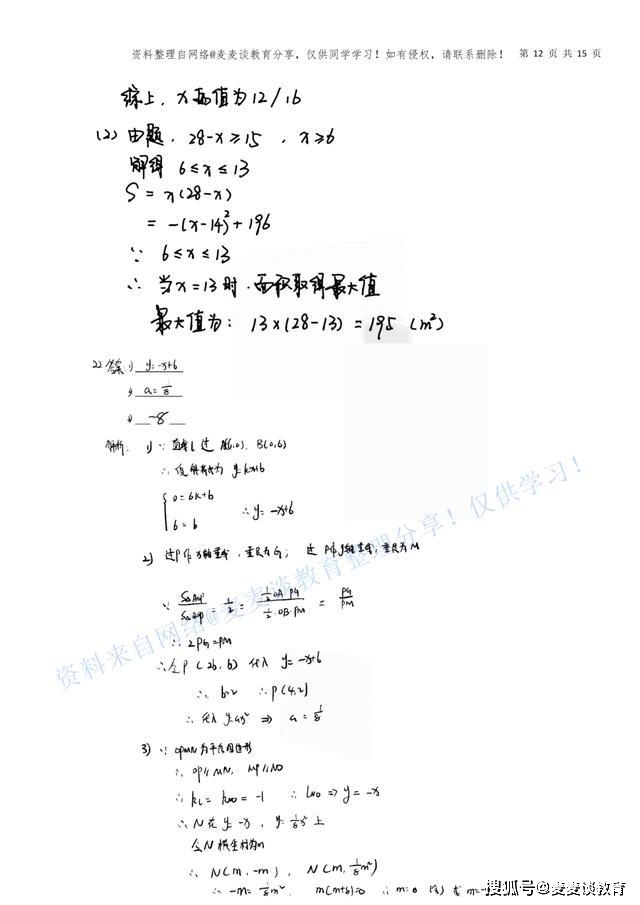 资料整理自网络@麦麦谈教育分享，仅供同学学习！如有侵权，请联系删除！ 第 12 页 共 15 页
综上，x的值为12/16
(2) 由题，28-x≥15，x≥6
解得 6≤x≤13
S = x(28-x)
= -(x-14)²+196
∵ 6≤x≤13
∴ 当x=13时，面积取得最大值
最大值为：13×(28-13)=195 (m²)
22 答案 1) y=-x+6
2) a=1/8
3) -8
解析： 1) ∵ 直线l过 A(6,0)，B(0,6)
∴ 设解析式为 y=kx+b
{ 0=6k+b
6=b ∴ y=-x+6
2) 过P作x轴垂线，垂足为G；过P作y轴垂线，垂足为M
∵ S△AOP/S△BOP = 1/2 = (1/2·OA·PG)/(1/2·OB·PM) = PG/PM
∴ 2PG=PM
∴ 令P(2b, b) 代入 y=-x+6
∴ b=2 ∴ P(4,2)
∴ 代入 y=ax² ⇒ a=1/8
3) ∵ OPMN为平行四边形
∴ OP∥MN，MP∥NO
∴ kL = kNO = -1 ∴ lNO ⇒ y=-x
∴ N在 y=-x，y=1/8x² 上
令N横坐标为m
∴ N(m, -m)，N(m, 1/8m²)
∴ -m=1/8m² m(m+8)=0 ∴ m=0
资料来自网络@麦麦谈教育整理分享！仅供学习！
搜狐号@麦麦谈教育